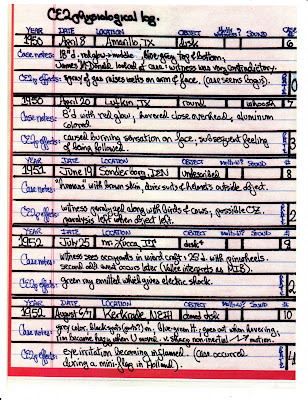 CE2φ physiological log.
YEAR DATE LOCATION OBJECT SOUND #
1950 April 8 Amarillo, TX disk 6
Case notes: 18"d. redglow middle blue-grey top & bottom.
James McDonald looked at case: witness was very contradictory.
effects: spray of gas raises welts on arm & face. (case seems bogus).
YEAR DATE LOCATION OBJECT SOUND #
1950 April 20 Lufkin, TX round whoosh 7
Case notes: 8'd with red glow, hovered close overhead, aluminum
colored
effects: caused burning sensation on face, subsequent feeling
of being followed.
YEAR DATE LOCATION OBJECT SOUND #
1951 June 19 Sonderborg, DEN Undescribed 8
Case notes: humans with brown skin, dark suits & helmets outside object.
effects: witness paralyzed along with birds & cows, possible CE2.
paralysis left when object left.
YEAR DATE LOCATION OBJECT SOUND #
1952 July 25 mt. Lucca, IT disk 9
Case notes: witness sees occupants in weird craft - 25'd. with pinwheels.
second odd event occurs later (Vallee interprets as MIB).
effects: green ray emitted which gives electric shock.
YEAR DATE LOCATION OBJECT SOUND #
1952 August 6/7 Kerkrade NETH domed disk 10
Case notes: gray color, black spots (ports?) on, blue-green lt., goes out when hovering,
rim became hazy when it moved. v. sharp non-inertial motion.
effects: eye irritation becoming inflamed. (case occurred
during a mini-flap in Holland).